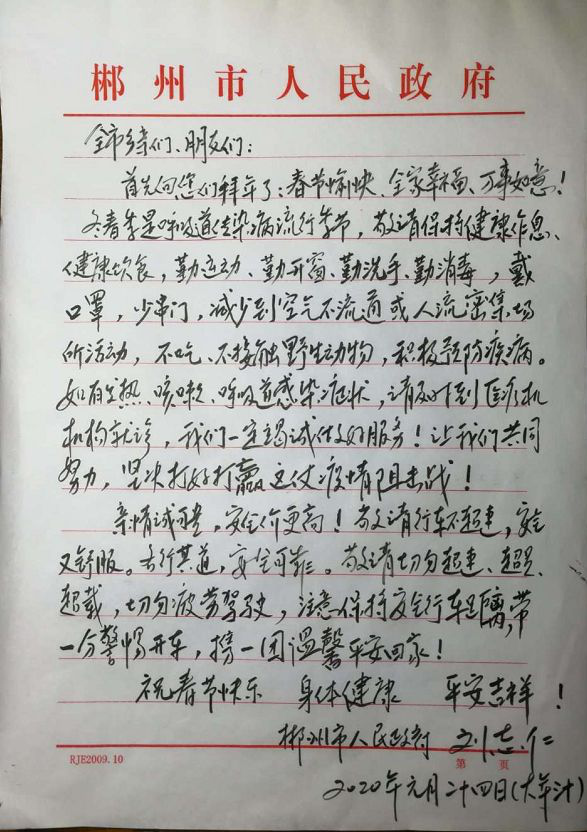 郴州市人民政府
全市乡亲们、朋友们：
首先向您们拜年了：春节愉快、全家幸福、万事如意！
冬春季是呼吸道传染病流行季节，敬请保持健康作息、
健康饮食，勤运动、勤开窗、勤洗手、勤消毒，戴
口罩，少串门，减少到空气不流通或人流密集场
所活动，不吃、不接触野生动物，积极预防疾病。
如有发热、咳嗽、呼吸道感染症状，请及时到医疗机
机构就诊，我们一定竭诚做好服务！让我们共同
努力，坚决打好打赢这仗疫情阻击战！
亲情诚可贵，安全价更高！敬请行车不超速，安全
又舒服。去行其道，安全可靠。敬请切勿超速、超员、
超载，切勿疲劳驾驶，注意保持安全行车距离，带
一分警惕开车，携一团温馨平安回家！
祝春节快乐 身体健康 平安吉祥！
郴州市人民政府 刘志仁
RJE2009.10
第 页
2020年元月二十四日(大年卅)